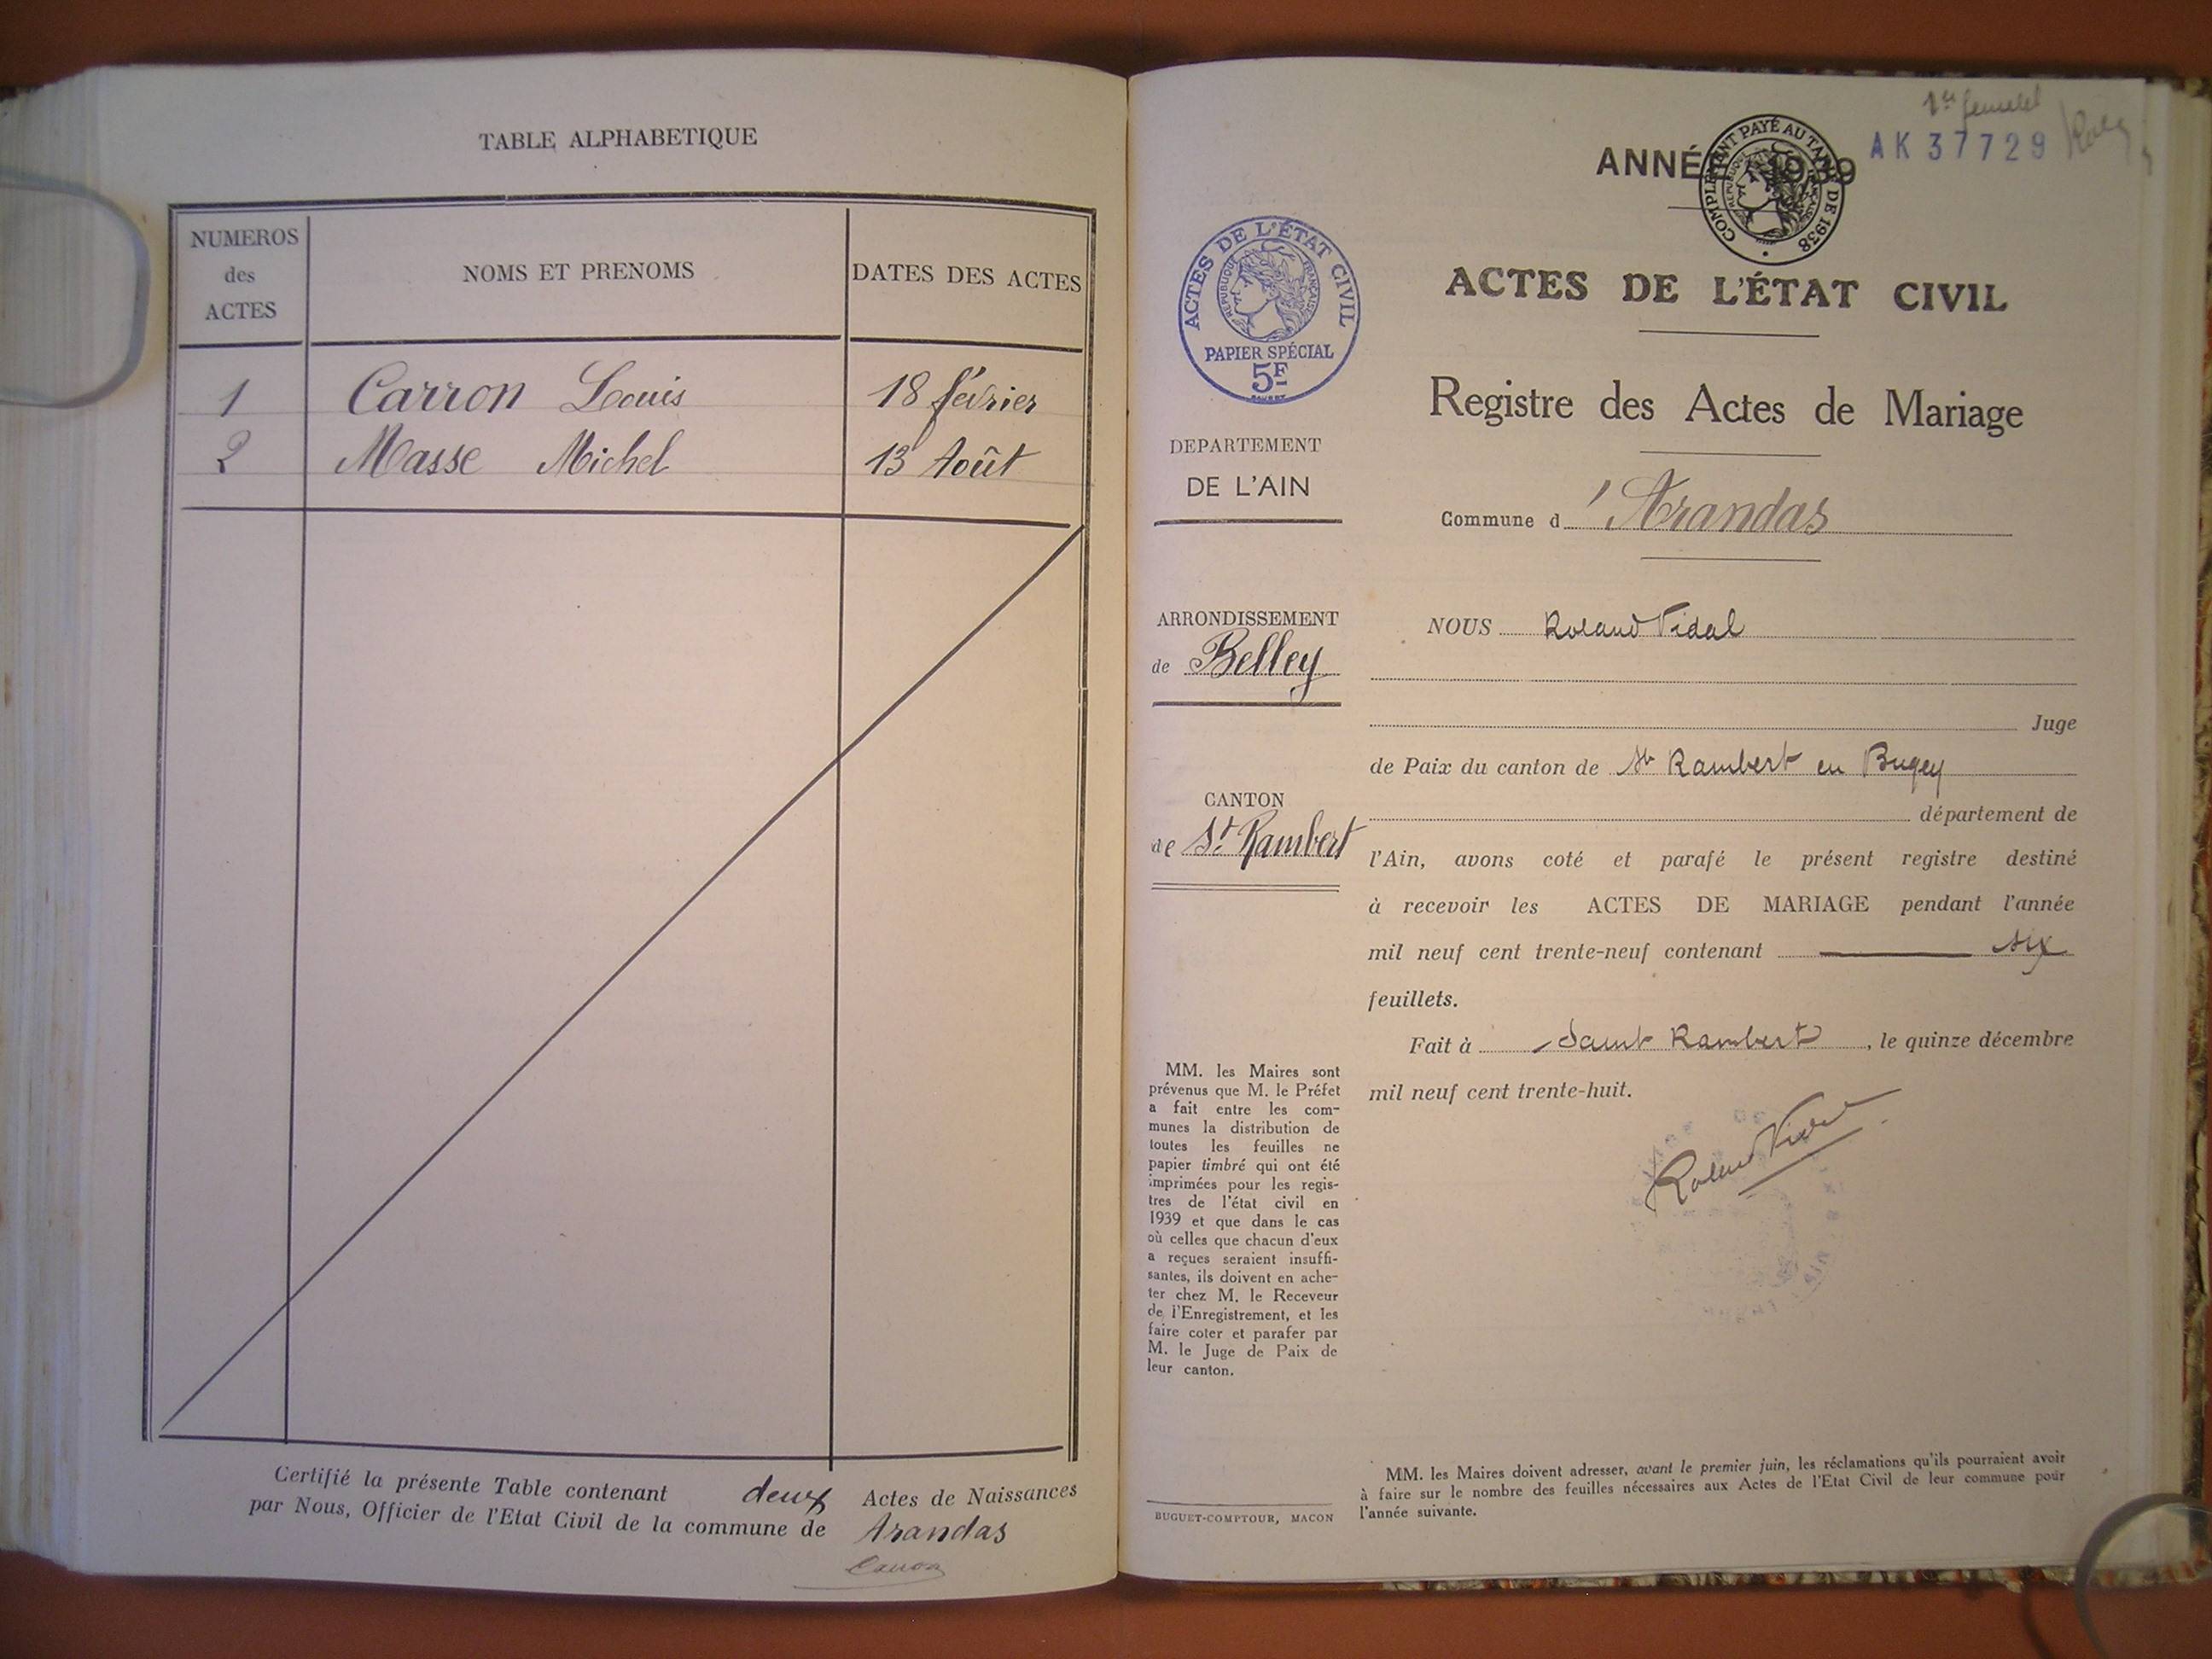 TABLE ALPHABETIQUE
NUMEROS
des
ACTES
NOMS ET PRENOMS
DATES DES ACTES
1 Carron Louis 18 février
2 Masse Michel 13 Août
Certifié la présente Table contenant deux Actes de Naissances
par Nous, Officier de l'Etat Civil de la commune de Arandas
AK 37729
ANNÉE 1939
COMPLÉMENT PAYÉ AU TARIF DE 1938
RÉPUBLIQUE FRANÇAISE
ACTES DE L'ÉTAT CIVIL
RÉPUBLIQUE FRANÇAISE
PAPIER SPÉCIAL
5F
ACTES DE L'ÉTAT CIVIL
Registre des Actes de Mariage
Commune d'Arandas
DEPARTEMENT
DE L'AIN
ARRONDISSEMENT
de Belley
CANTON
de St Rambert
MM. les Maires sont
prévenus que M. le Préfet
a fait entre les com-
munes la distribution de
toutes les feuilles ne
papier timbré qui ont été
imprimées pour les regis-
tres de l'état civil en
1939 et que dans le cas
où celles que chacun d'eux
a reçues seraient insuffi-
santes, ils doivent en ache-
ter chez M. le Receveur
de l'Enregistrement, et les
faire coter et parafer par
M. le Juge de Paix de
leur canton.
BUGUET-COMPTOUR, MACON
NOUS Roland Vidal
Juge
de Paix du canton de St Rambert en Bugey
département de
l'Ain, avons coté et parafé le présent registre destiné
à recevoir les ACTES DE MARIAGE pendant l'année
mil neuf cent trente-neuf contenant six
feuillets.
Fait à Saint Rambert, le quinze décembre
mil neuf cent trente-huit.
Roland Vidal
MM. les Maires doivent adresser, avant le premier juin, les réclamations qu'ils pourraient avoir
à faire sur le nombre des feuilles nécessaires aux Actes de l'Etat Civil de leur commune pour
l'année suivante.